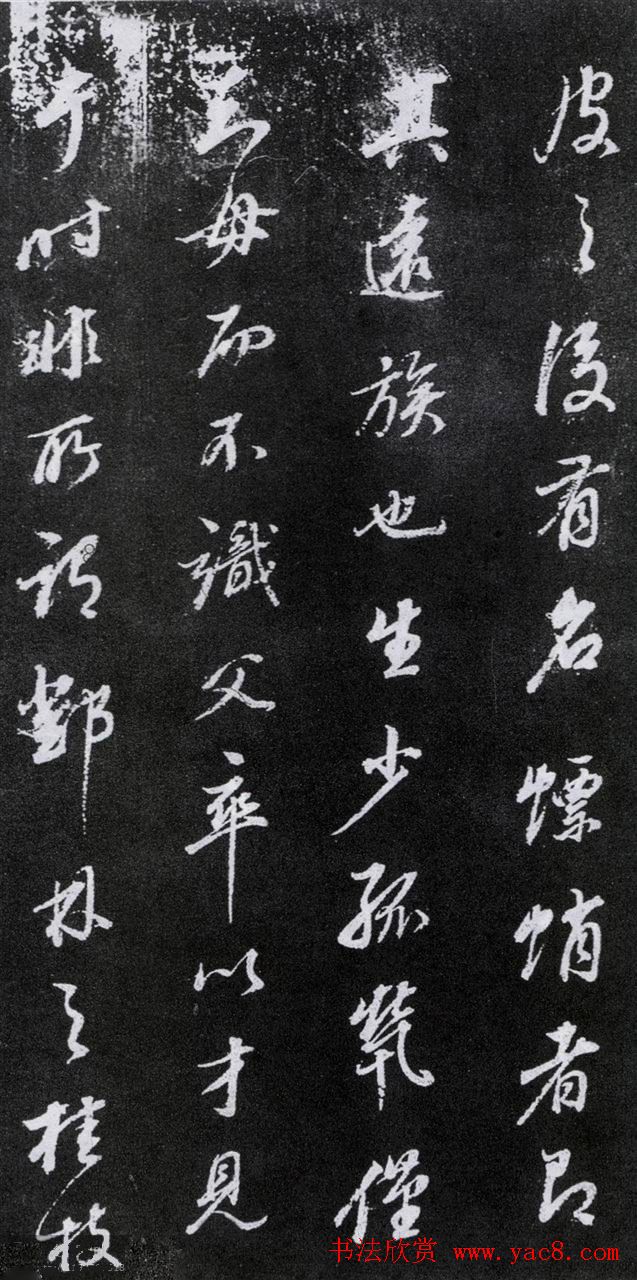 皮之後有名螵蛸者即
其遠族也生少孤煢僅
母而不識父卒以才見
于時非所謂鄧林之桂枝
书法欣赏 www.yac8.com